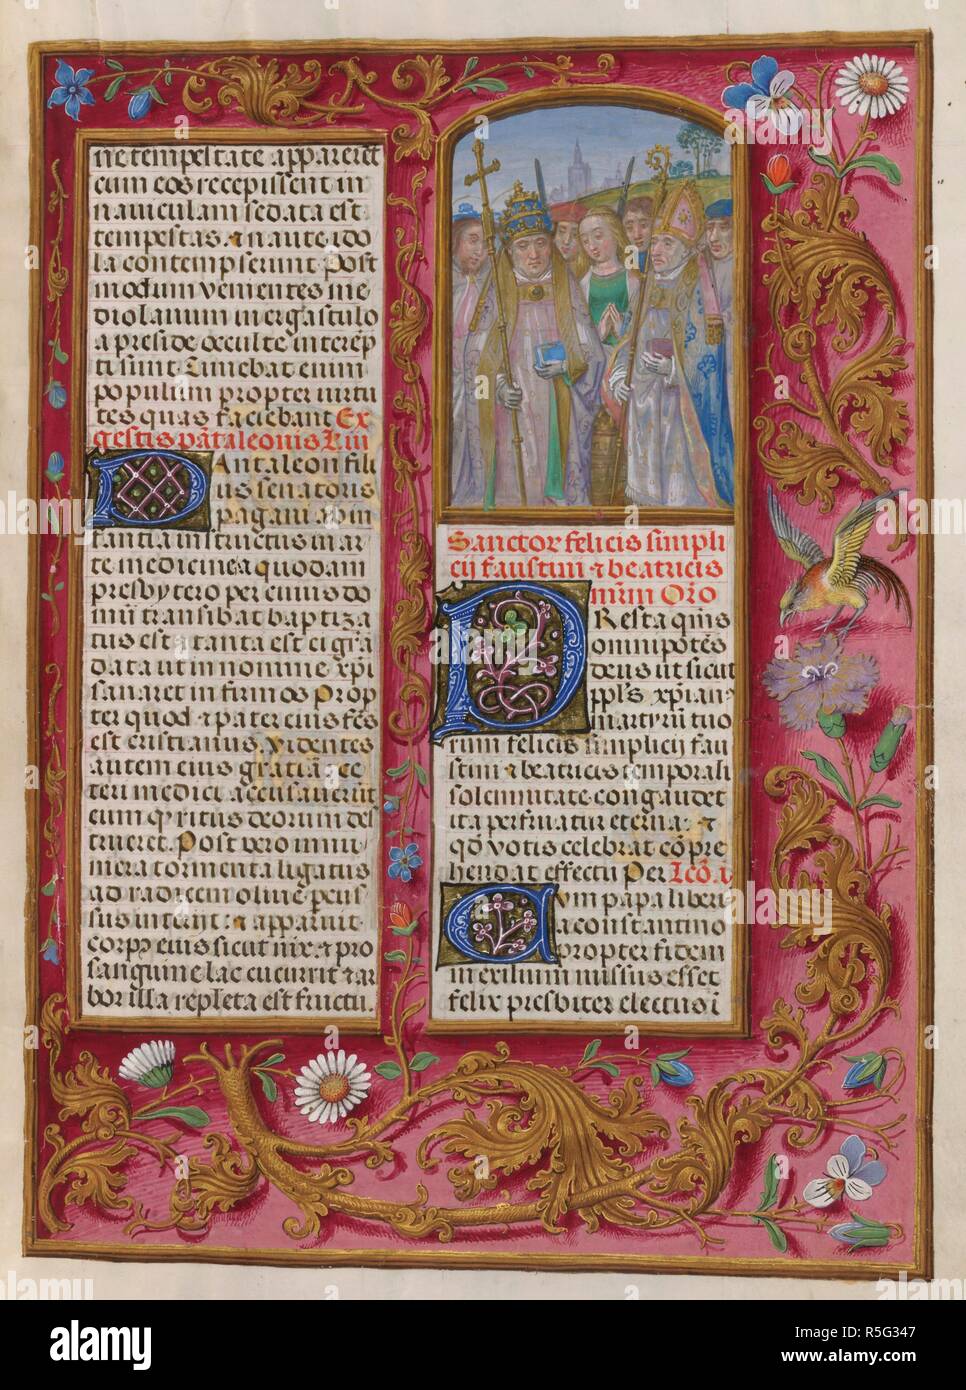 ne tempestate apparerēt
eum eos recepissent in
nauiculam sedata est
tempestas et naute ido
la contempserunt Post
modum venientes me
diolanum in ergastulo
a preside occulte interēp
ti sunt. Timebat enim
populum propter uirtu
tes quas faciebant Ex
gestis pātaleonis Lm̄
PAntaleon fili
us senatoris
pagani ab in
fantia instructus in ar
te medicinea quodam
presbytero per cuius do
mū transibat baptiza
tus est tanta est ei grā
data ut in nomine xp̄i
sanaret infirmos Prop
ter quod et pater eius fc̄s
est cristianus Videntes
autem eius gratiā ce
teri medici accusauerūt
eum qd ritus deorum des
trueret. Post vero innu
mera tormenta ligatus
ad radicem oliue pcus
sus interiit et apparuit
corpꝰ eius sicut nix et pro
sanguine lac cucurrit et ar
bor illa repleta est fructu
Sanctor felicis simpli
cij faustini et beatricis
mr̄m Or̄o
PResta quis
omnipotēs
deus ut sicut
ppl̄s xp̄ian
martyrū tuo
rum felicis simplicij fau
stini et beatricis temporali
solemnitate congaudet
ita perfruatur eterna et
qd votis celebrat cōpre
hendat effectu Per Lc̄o.i.
CVm papa liberi
a constantino
propter fidem
in exilium missus esset
felix presbiter electus ī
alamy
alamy
Image ID: R5G347
www.alamy.com